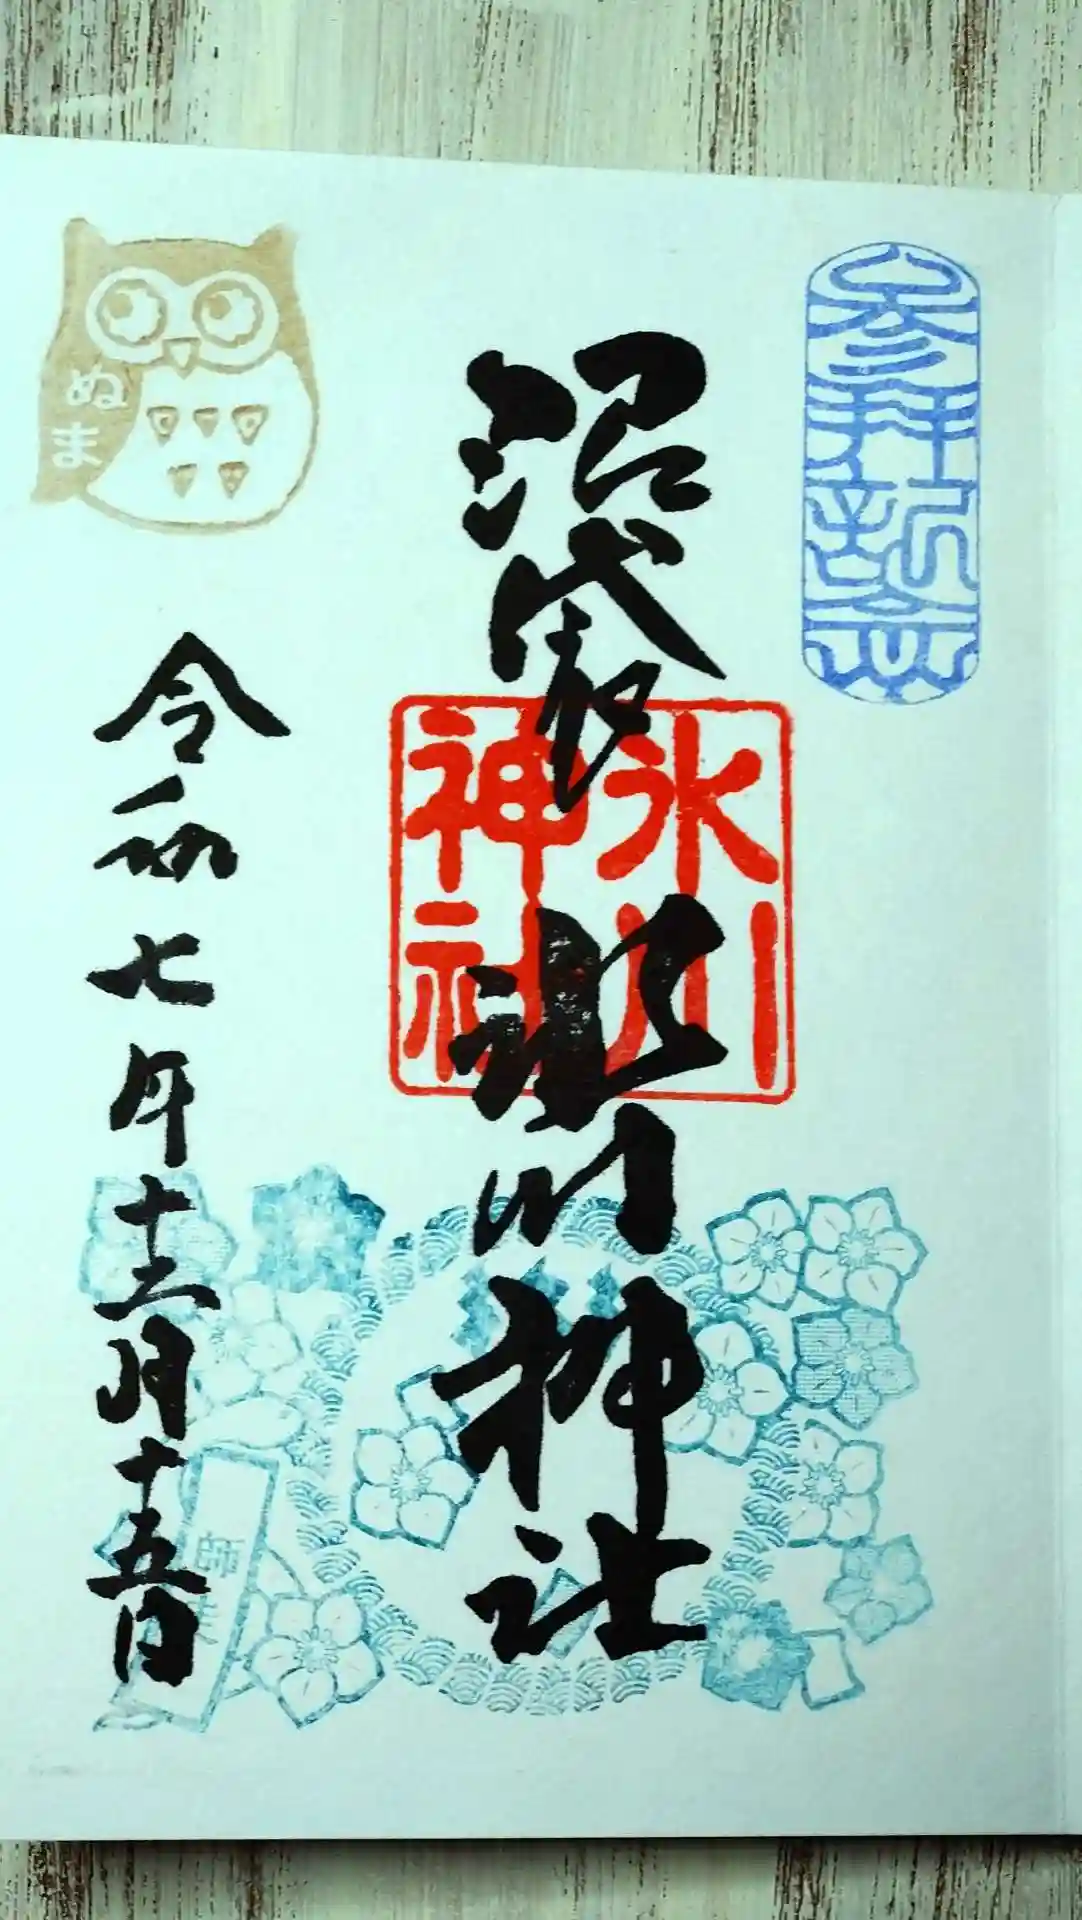 参拝記念
沼袋
氷川神社
氷川
神社
ぬま
令和七年十二月十五日